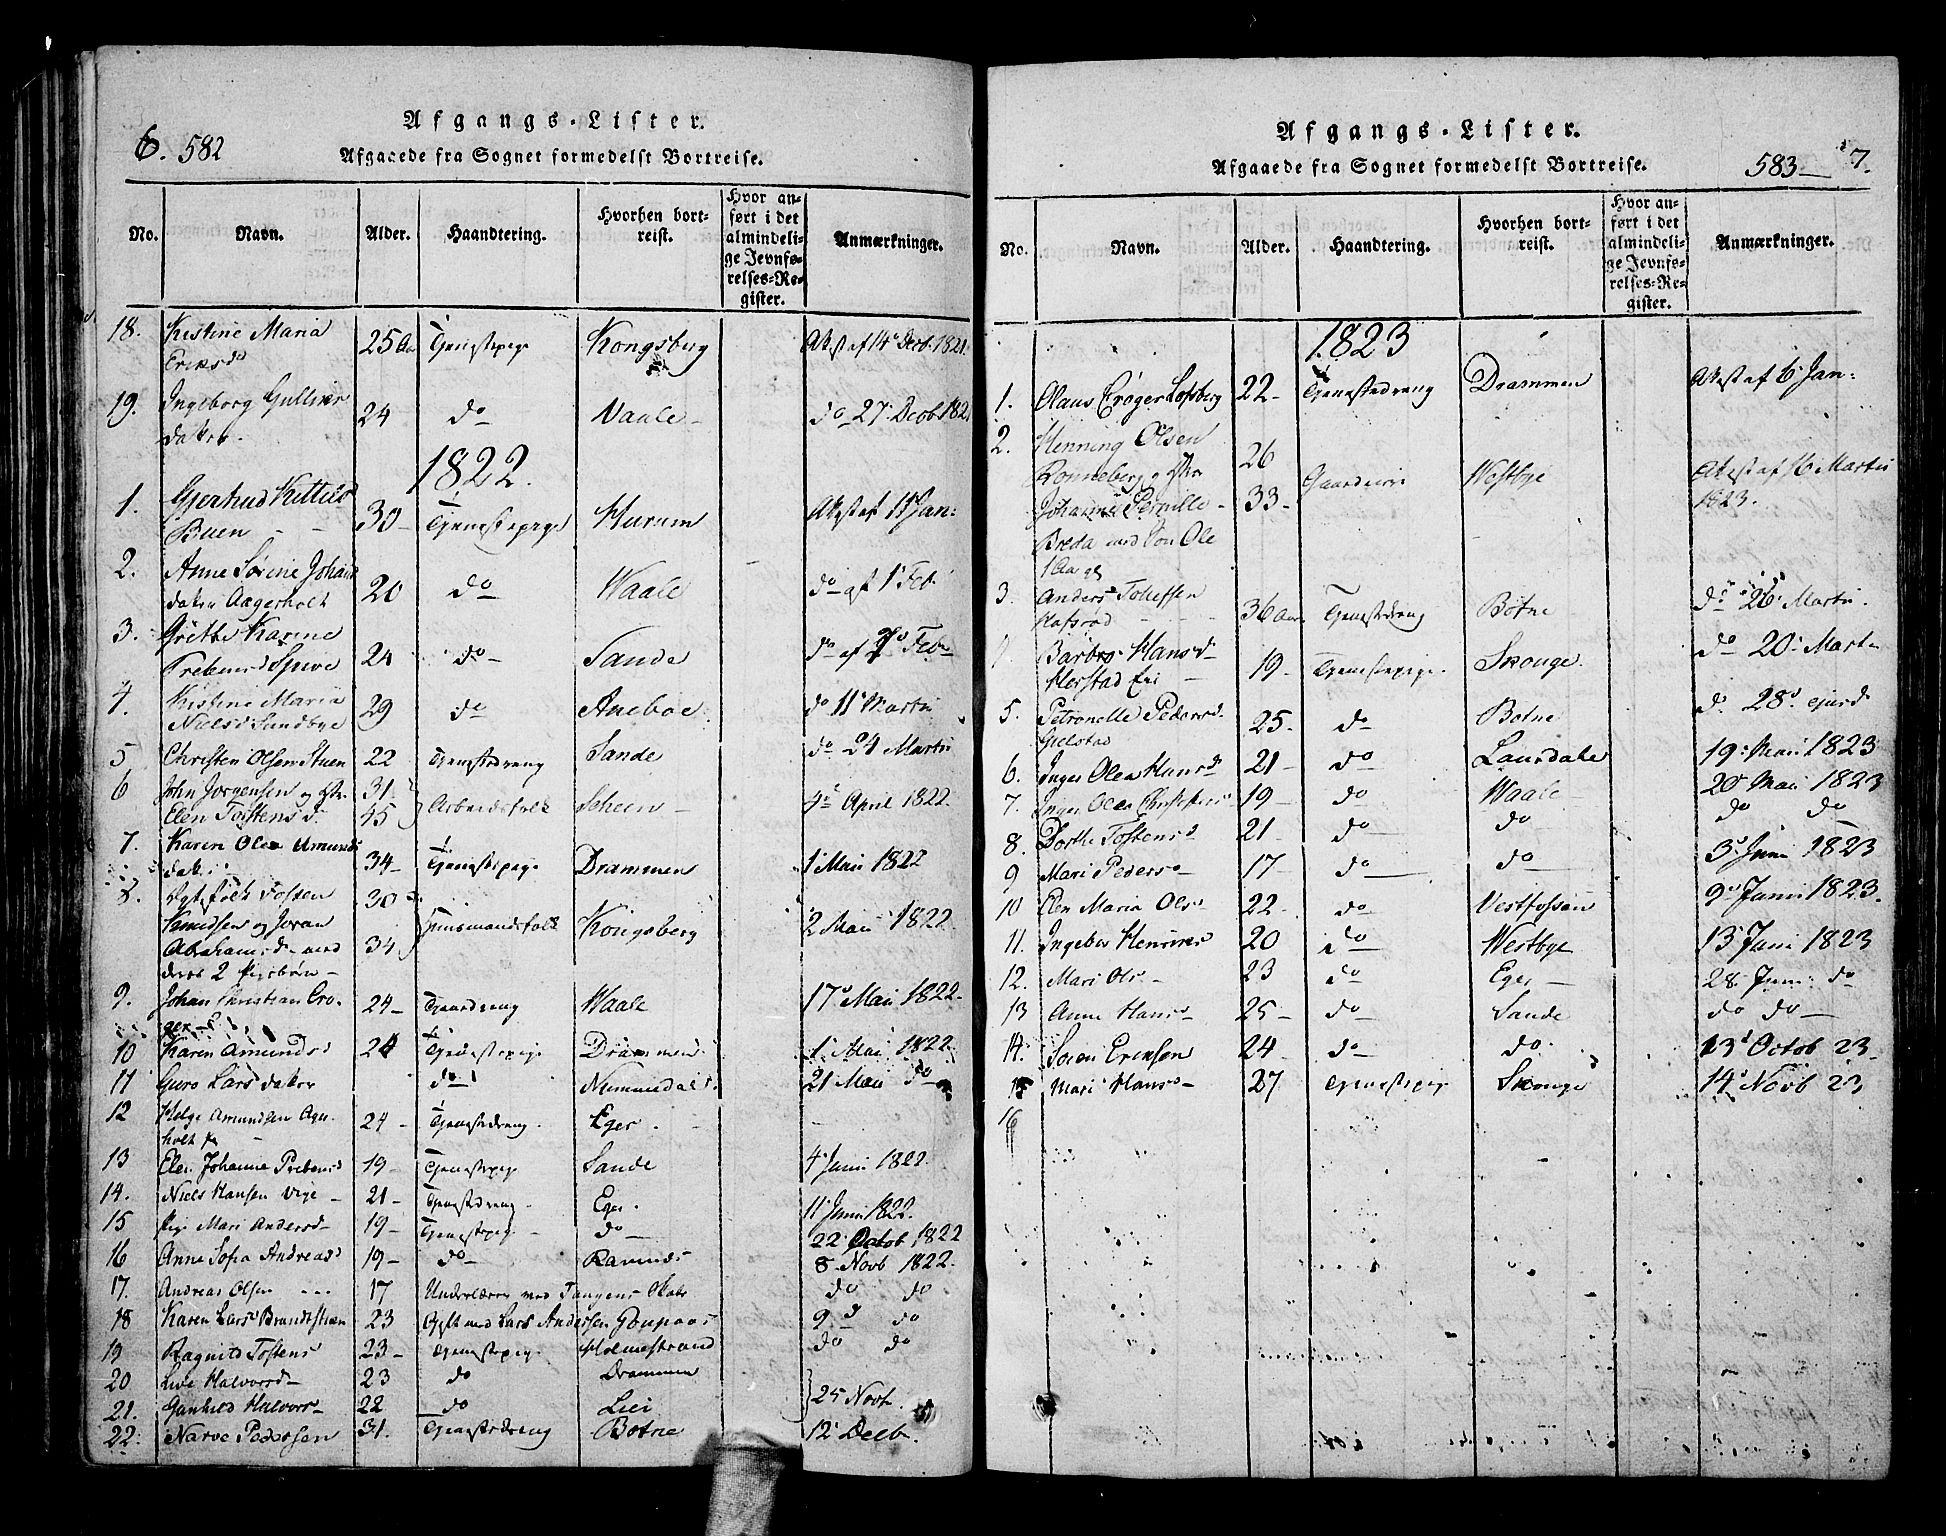 6. 582
Afgangs-Lister.
Afgaaede fra Sognet formedelst Bortreise.
No. Navn. Alder. Haandtering. Hvorhen bortreist. Hvor anført i det almindelige Jevnførelses-Register. Anmærkninger.
18. Kistine Maria Eriksd 25 Aar Tjenestepige Kongsberg Attest af 14 Decb. 1821.
19. Ingeborg 24 do Vaale do 27 Decb 182
1822.
1. Kittils Buen 30 Tjenestepige Hurum Attest af 11 Jan:
2. Anne Sørine Johans daker Aagerholt 20 do Waale do af 1 Feb
3. Grette Karine Prebens d 24 do Sande do af Feb
4. Kistine Maria Nielsd Sundbye 29 do Aneboe do 11 Martii
5 Christen Olsen Stuen 22 Tjenestedreng Sande do 24 Martii
6 John Jorgensen og 31
Elen Tostens d. 45 Arbeidsfolk Scheen 4 April 1822
7. Karen Olea Amunds daker 34 Tjenestepige Drammen 1 Mai 1822
8. Tosten 30
Knudsen og Joran Huusmandsfolk Kongsberg 2 Mai 1822
Abrahamsd med 34
deres 2 Pigebørn
9. Johan Christian Crøger 24 Tjenestdreng Waale 17 Mai 1822
10 Karen Amundsd 24 Tjenestepige Drammen 1 Mai 1822
11 Guro Lars daker do Nummedal 21 Mai do
12 Helge Amundsen 24 Tjenestedreng Eger.
13 Elen Johanne Prebensd 19 Tjenestepige Sande 4 Juni 1822
14. Niels Hansen Vige 21 Tjenestedreng Eger. 11 Juni 1822.
15 Pige Mari Andersd 19 Tjenestepige do 22 Octob 1822
16 Anne Sofia Andreasd 19 do Ramnes 8 Novb 1822.
17. Andreas Olsen 17 med Tangens do do
18 Karen Larsd 23 Gift med Lars Andersen 9 do
19 Ragnild Tostens 23 Tjenestepige Holmestrand do do
20 Live Halvorsd 23 do Drammen
21. Gunhild Halvors 22 do Liei 25 Novb.
22. Narve Pedersen 31. Tjenestedreng Botne 12 Decb.
Afgangs-Lister.
Afgaaede fra Sognet formedelst Bortreise.
583 7.
No. Navn. Alder. Haandtering. Hvorhen bortreist. Hvor anført i det almindelige Jevnførelses-Register. Anmærkninger.
1823
1. Olaus Crøger Lofsberg 22 Tjenestedreng Drammen Attest af 6 Jan:
2. Henning Olsen
Ronneberg og 26 Westbye Attest af 16 Martii
Johanne Pernille 33 1823.
Breda med Son Ole
1 Aar
3. Anders Tollefsen 36 Aar Tjenestedreng Botne do 26 Martii.
Barbro Hansd 19 Tjenestepige Skouge do 20 Martii
5. Petronelle Pedersd. 25 do Botne do 28 ejusd
6. Inger Olea Hansd 21 do Laurdale 19 Mai 1823
7. Inger Olea 19 do Waale 20 Mai 1823
8. Dorthe Tostensd 21 do do do do
9 Mari Pedersd 17 do do 3 Juni 1823
10 Elen Maria Olsd 22 do Vestfossen 9 Juni 1823.
11. Ingebor 20 do Westbye 13 Juni 1823
12. Mari Olsd 23 do Eger 28 Juni do
13 Anne Hansd 25 do Sande do do
14. Soren Eriksen 24 do do 13 Octob 23
15 Mari Hansd 27 Tjenestepige Skouge 14 Novb 23
16